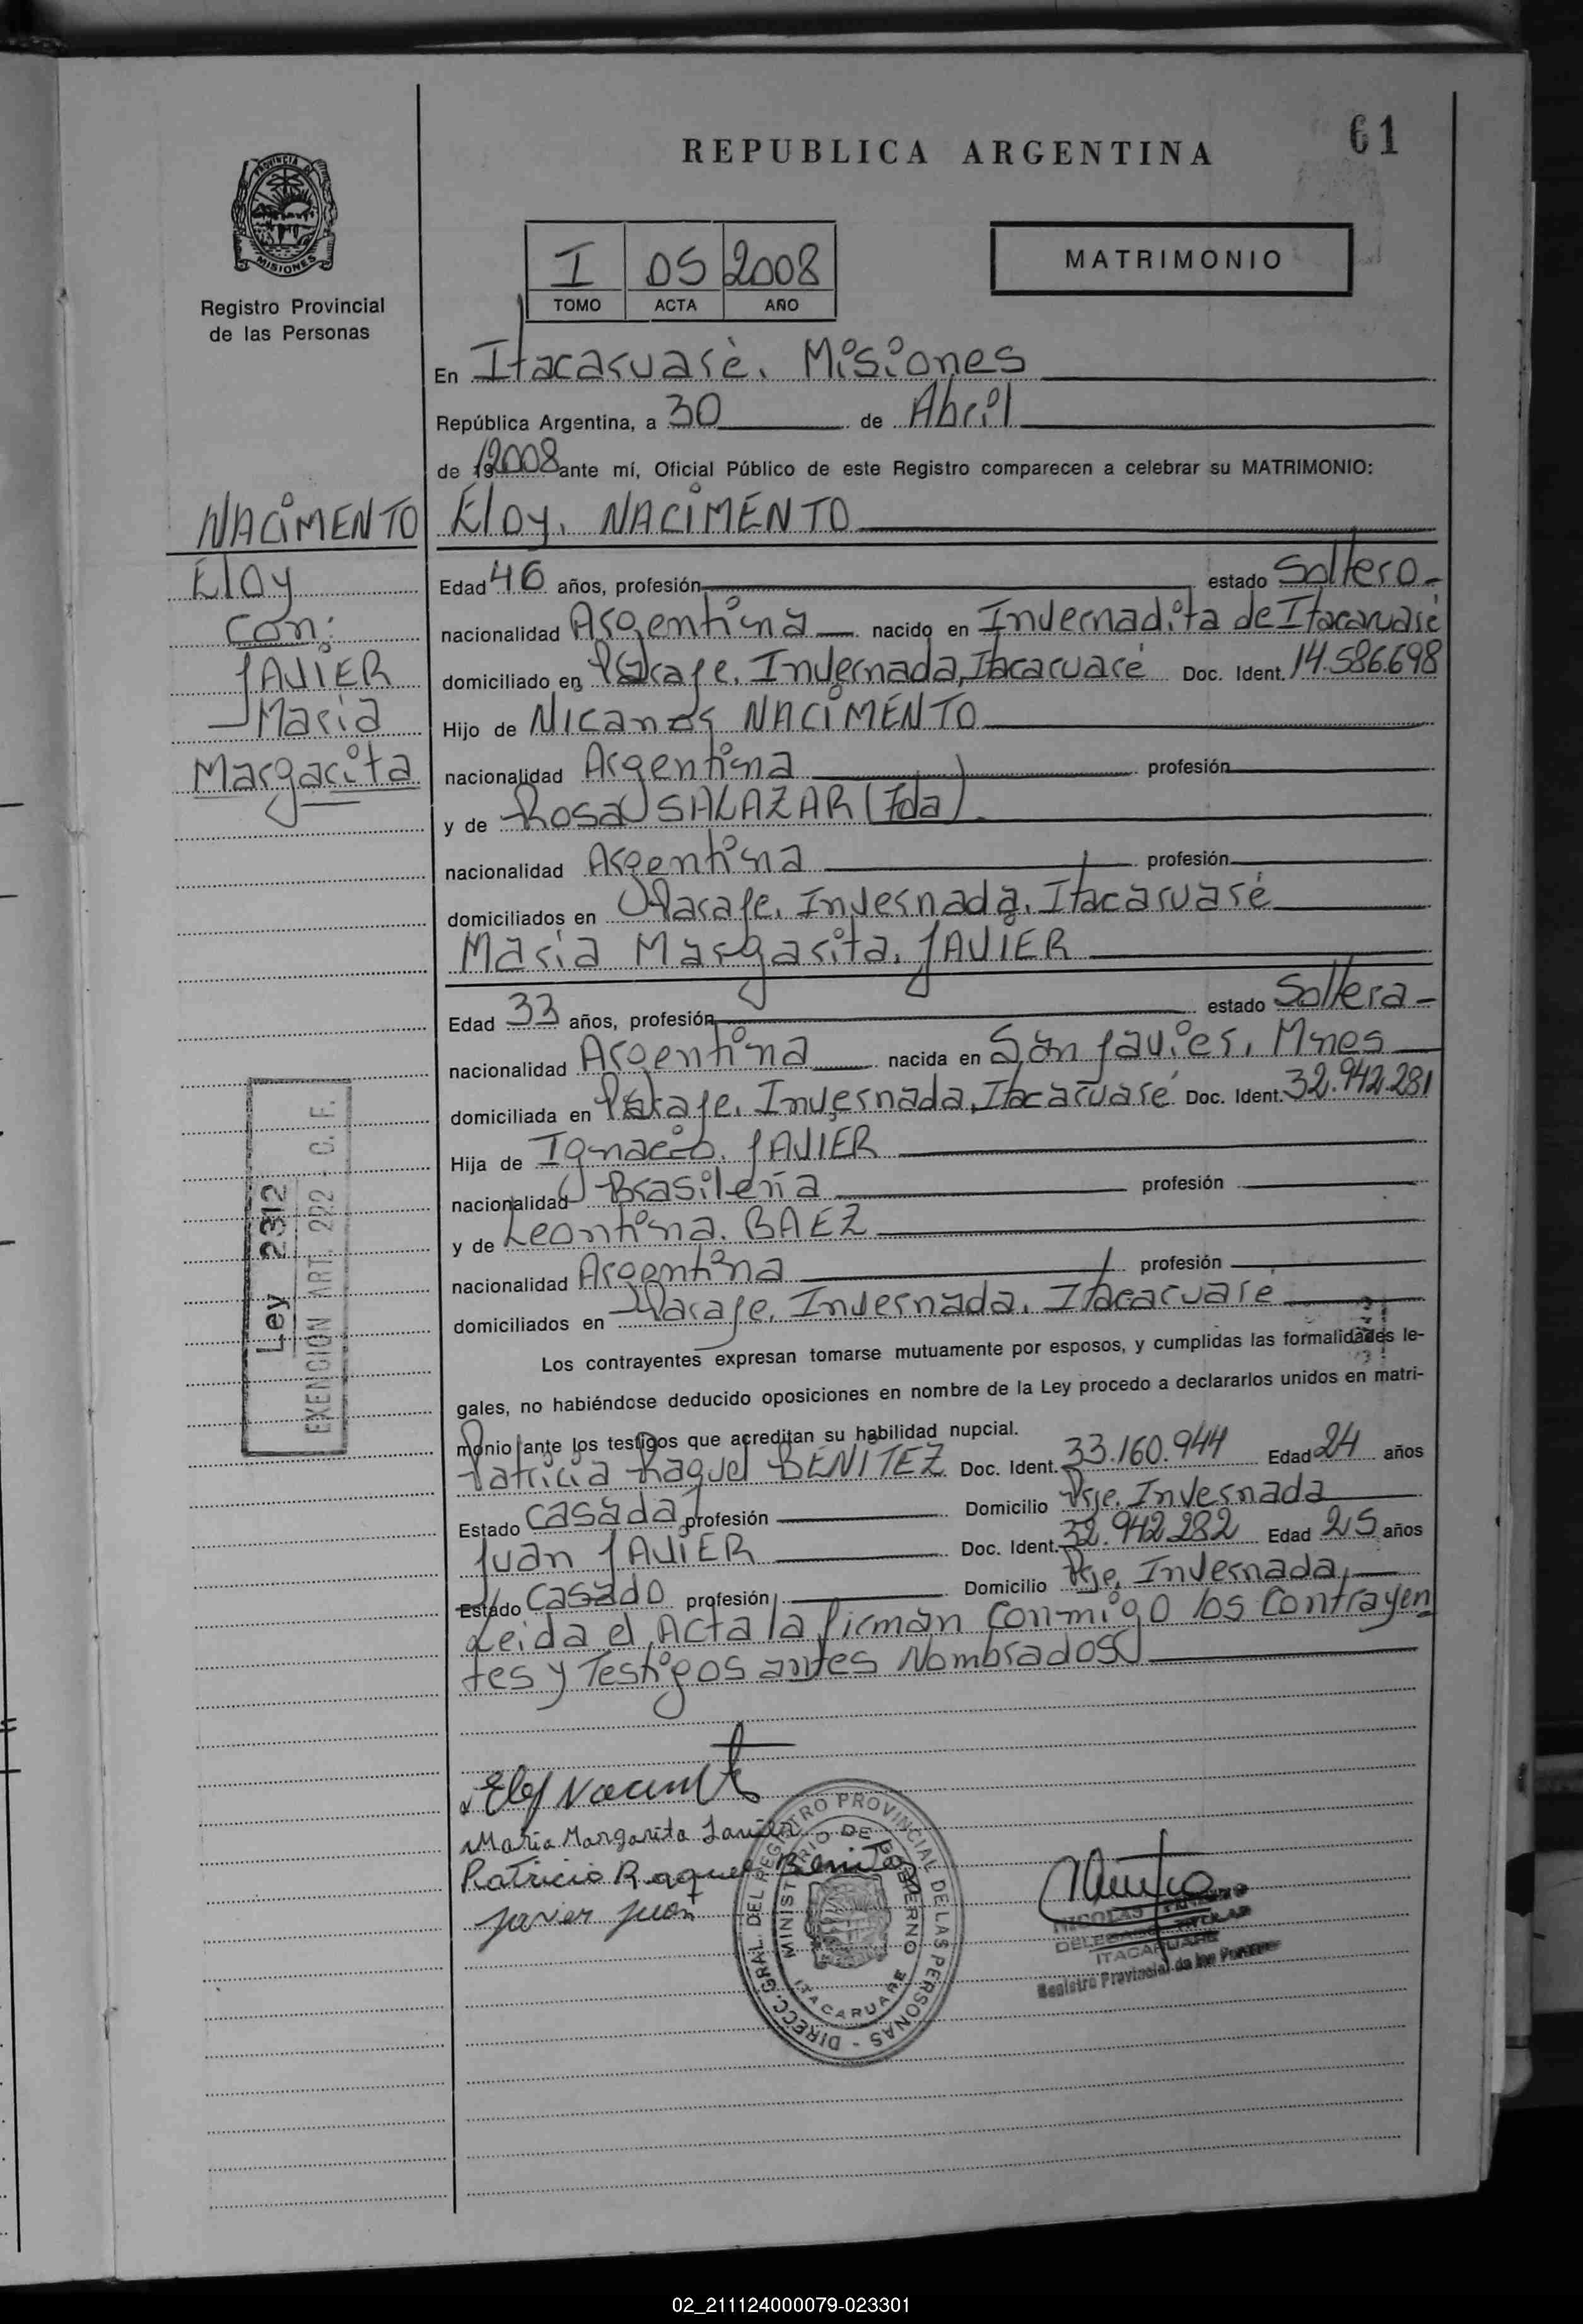 61
REPUBLICA ARGENTINA
PROVINCIA DE
MISIONES
Registro Provincial
de las Personas
I 05 2008
TOMO ACTA AÑO
MATRIMONIO
En Itacaruaré. Misiones
República Argentina, a 30 de Abril
de 2008 ante mí, Oficial Público de este Registro comparecen a celebrar su MATRIMONIO:
NACIMENTO
Eloy
con:
JAVIER
Maria
Margarita
Eloy. NACIMENTO
Edad 46 años, profesión estado Soltero
nacionalidad Argentina nacido en Invernadita de Itacaruaré
domiciliado en Paraje. Invernada, Itacaruaré Doc. Ident. 14.586.698
Hijo de Nicanor NACIMENTO
nacionalidad Argentina profesión
y de Rosa SALAZAR (Fda)
nacionalidad Argentina profesión
domiciliados en Paraje. Invernada. Itacaruaré
Maria Margarita. JAVIER
Edad 33 años, profesión estado Soltera
nacionalidad Argentina nacida en San Javier. Mnes
domiciliada en Paraje. Invernada, Itacaruaré Doc. Ident. 32.942.281
Hija de Ignacio. JAVIER
nacionalidad Brasileña profesión
y de Leontina. BAEZ
nacionalidad Argentina profesión
domiciliados en Paraje. Invernada. Itacaruaré
Ley 2312
EXENCION ART. 222 - C. F.
Los contrayentes expresan tomarse mutuamente por esposos, y cumplidas las formalidades le-
gales, no habiéndose deducido oposiciones en nombre de la Ley procedo a declararlos unidos en matri-
monio ante los testigos que acreditan su habilidad nupcial.
Patricia Raquel BENITEZ Doc. Ident. 33.160.944 Edad 24 años
Estado Casada profesión Domicilio Prje. Invernada
Juan JAVIER Doc. Ident. 32.942.282 Edad 25 años
Estado Casado profesión Domicilio Prje. Invernada
Leida el Acta la firman conmigo los Contrayen
tes y Testigos antes Nombrados
Maria Margarita Javier
Patricia Raquel Benitez
Javier Juan
DIRECC. GRAL. DEL REGISTRO PROVINCIAL DE LAS PERSONAS -
MINISTERIO DE GOBIERNO
ITACARUARE
NICOLAS
DELEGADO TITULAR
ITACARUARE
Registro Provincial de las Personas
02_211124000079-023301